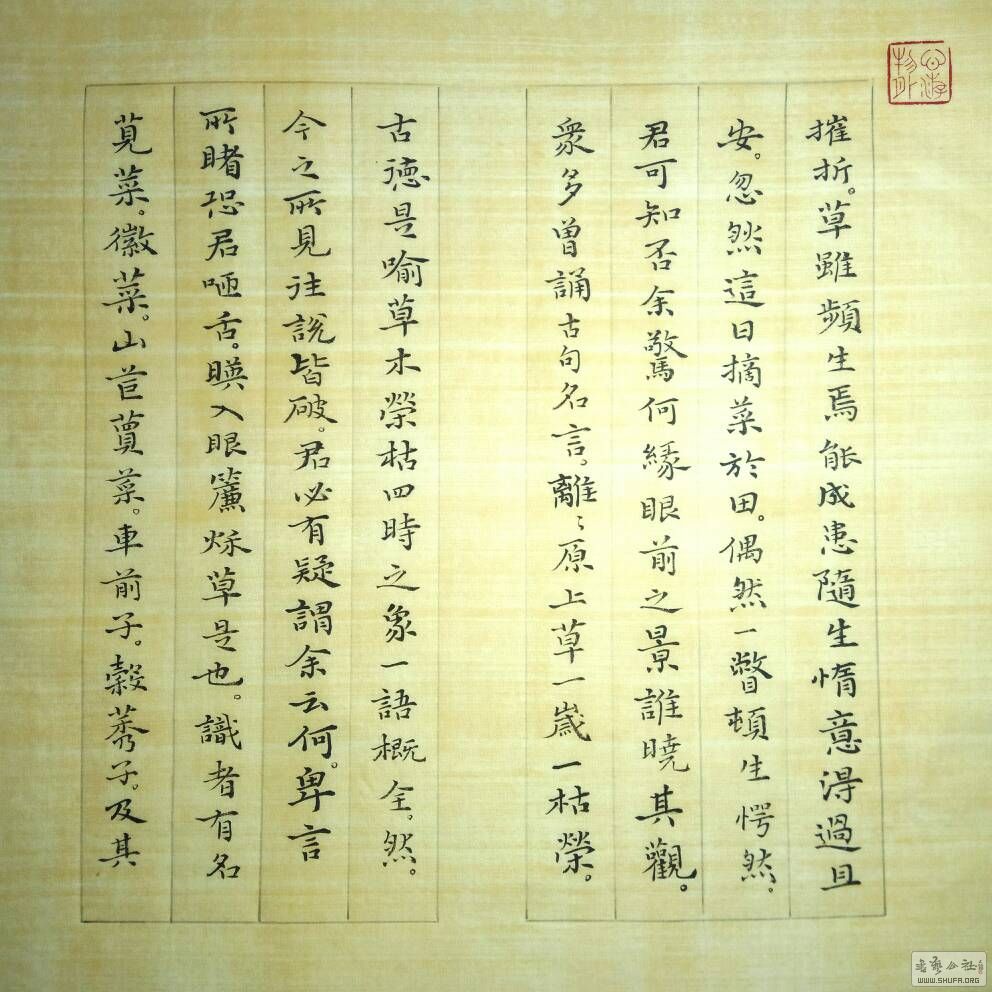 摧折。草雖頻生焉能成患隨生惰意得過且
安。忽然這日摘菜於田。偶然一瞥頓生愕然。
君可知否余驚何緣眼前之景誰曉其觀。
衆多曾誦古句名言。離々原上草一歲一枯榮。
古德是喻草木榮枯四時之象一語概全。然。
今之所見往說皆破。君必有疑謂余云何。卑言
所睹恐君咂舌。暎入眼簾烁草是也。識者有名
莧菜。徽菜。山苣蕒菜。車前子。穀莠子。及其
WWW.SHUFA.ORG